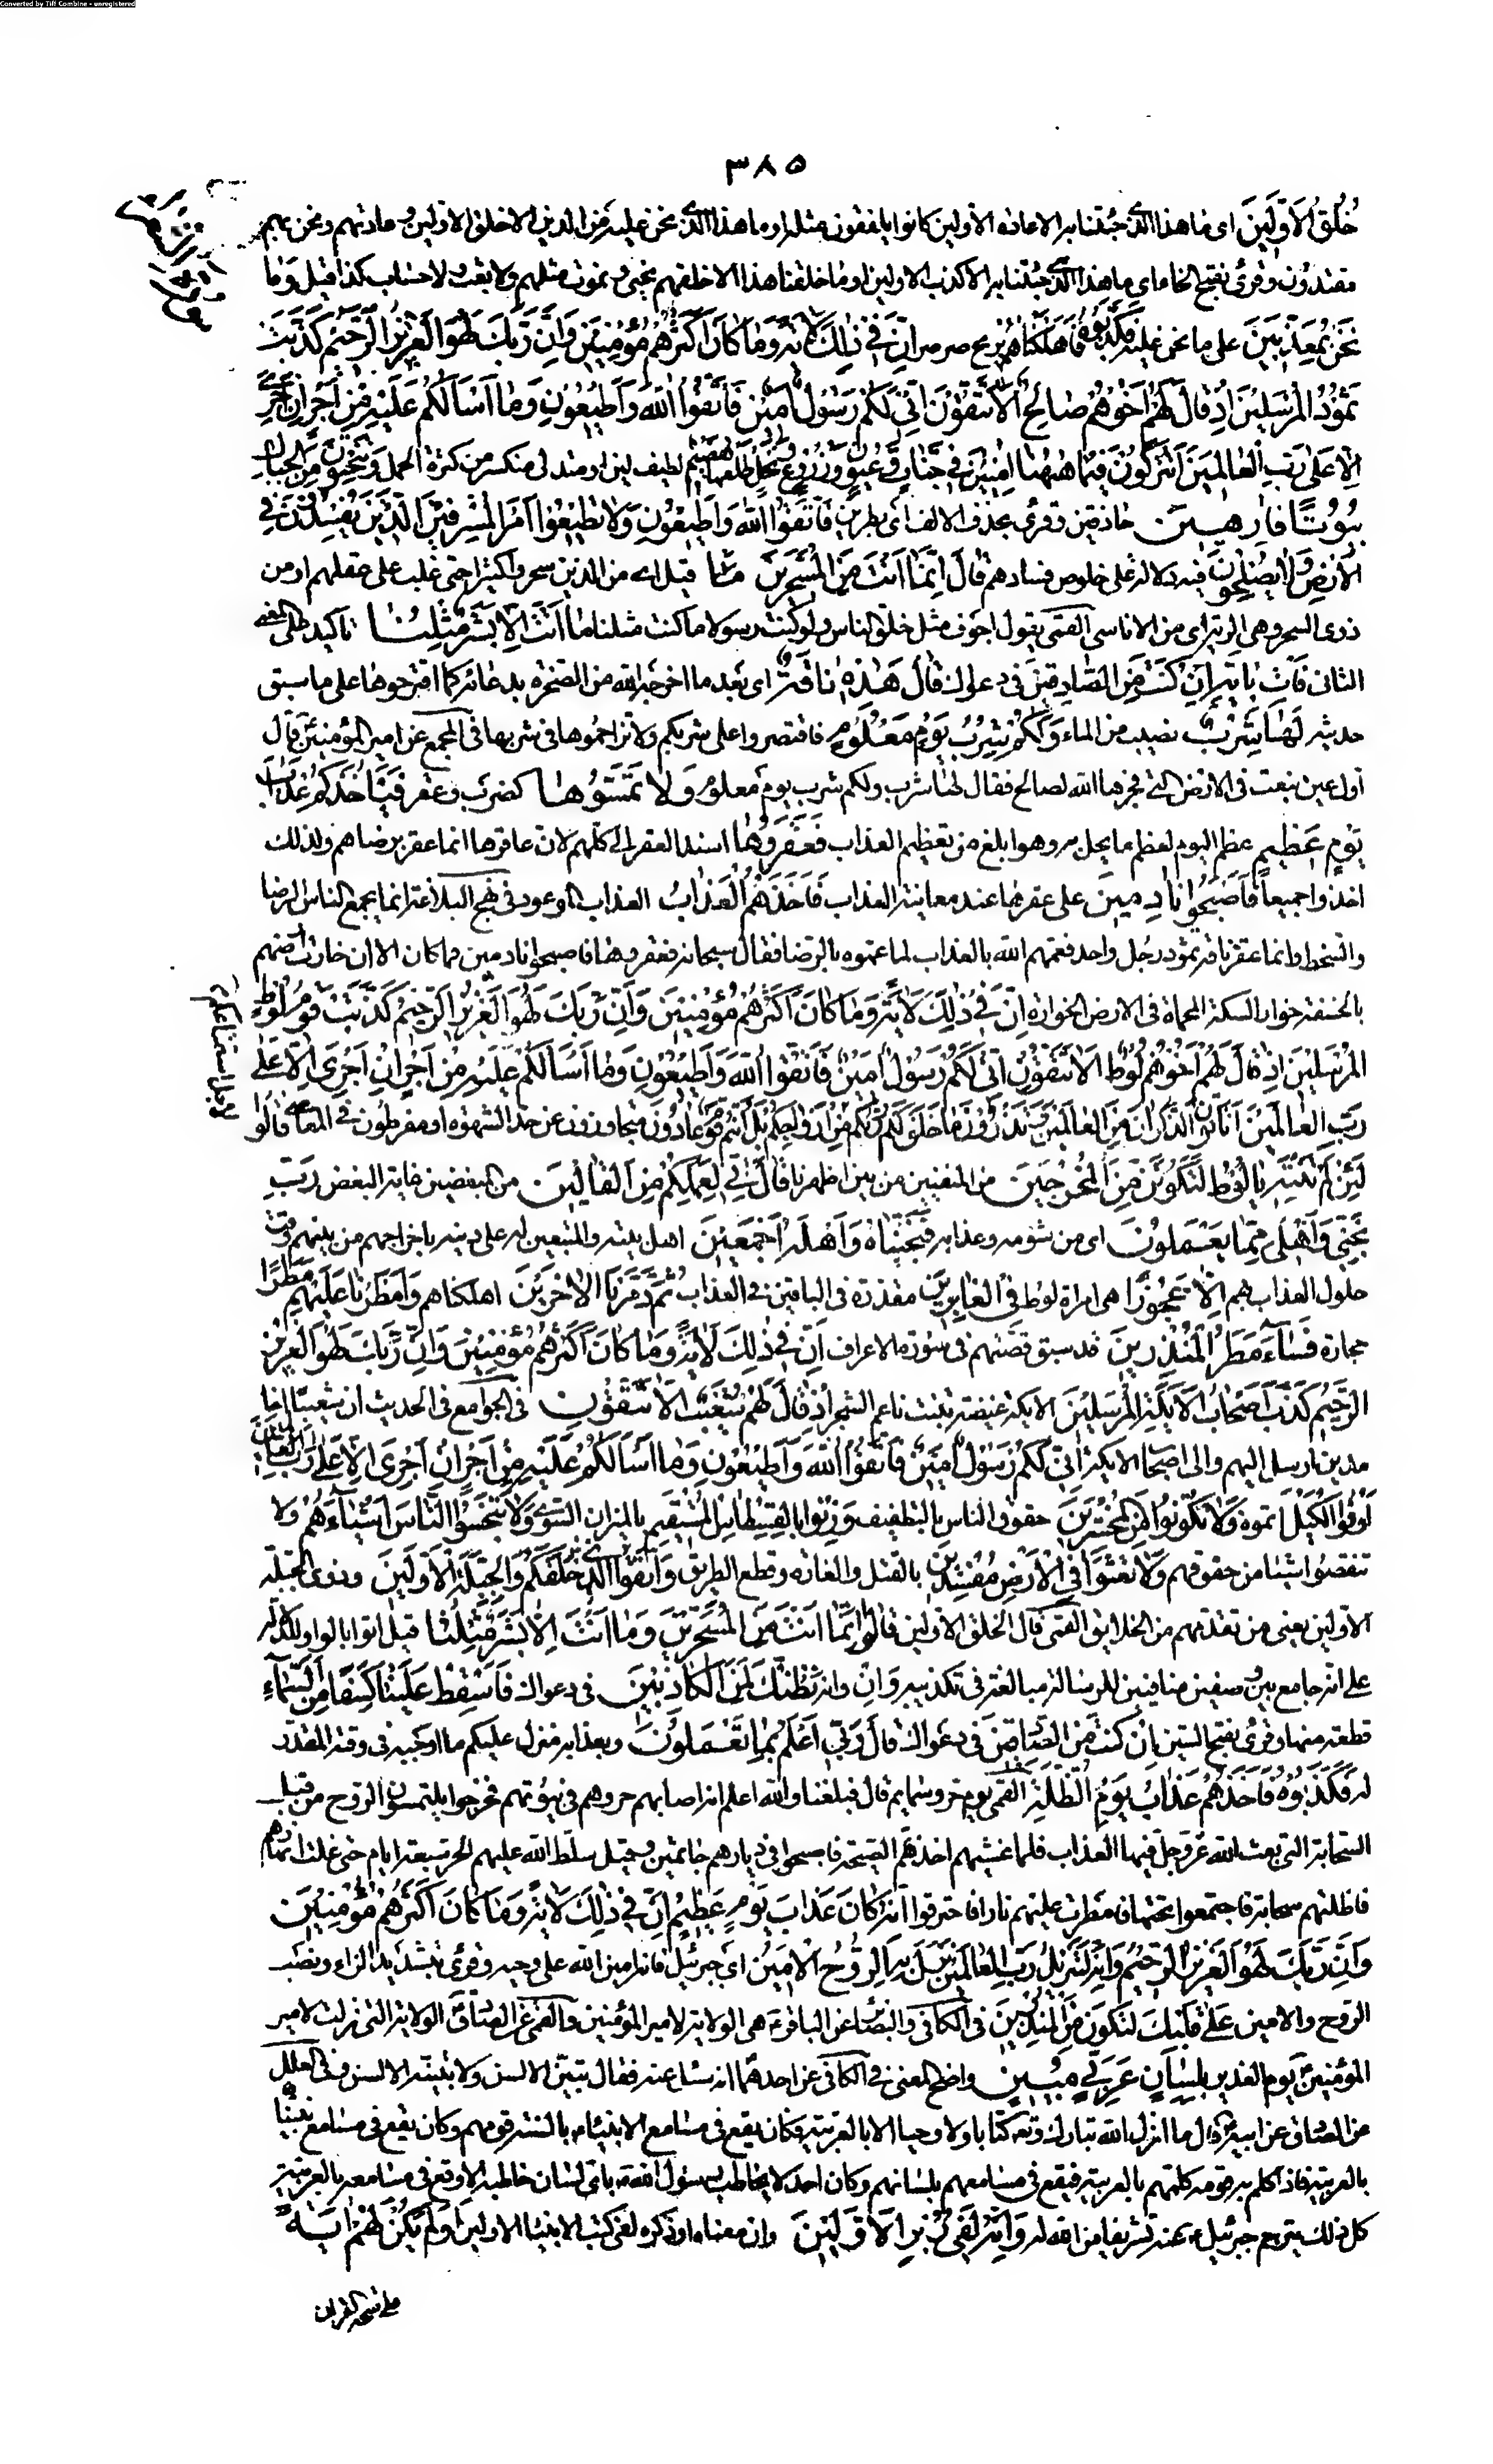 Converted by Tiff Combine - unregistered
٣٨٥
خُلُقُ الْاَوَّلِينَ اى ما هذا الّذى جئتنا به الا عادة الاوّلين كانوا يلفقون مثله او ما هذا الّذى نحن عليه من الدين الا خلق الاوّلين و عادتهم ونحن بهم
مقتدون وقرئ بفتح الخاء اى ما هذا الّذى جئتنا به الا كذب الاولين او ما خلقنا هذا الا خلقهم نحيى و نموت مثلهم ولا بعث ولا حساب كذا قيل وَمَا
نَحْنُ بِمُعَذَّبِينَ على ما نحن عليه فَكَذَّبُوهُ فَاَهْلَكْنَاهُمْ بريح صرصر اِنَّ فِى ذٰلِكَ لَاٰيَةً وَمَا كَانَ اَكْثَرُهُمْ مُؤْمِنِينَ وَاِنَّ رَبَّكَ لَهُوَ الْعَزِيزُ الرَّحِيمُ كَذَّبَتْ
ثَمُودُ الْمُرْسَلِينَ اِذْ قَالَ لَهُمْ اَخُوهُمْ صَالِحٌ اَلَا تَتَّقُونَ اِنِّى لَكُمْ رَسُولٌ اَمِينٌ فَاتَّقُوا اللّٰهَ وَاَطِيعُونِ وَمَا اَسْاَلُكُمْ عَلَيْهِ مِنْ اَجْرٍ اِنْ اَجْرِىَ
اِلَّا عَلٰى رَبِّ الْعَالَمِينَ اَتُتْرَكُونَ فِيمَا هٰهُنَا اٰمِنِينَ فِى جَنَّاتٍ وَعُيُونٍ وَزُرُوعٍ وَنَخْلٍ طَلْعُهَا هَضِيمٌ لطيف لين او متدلى منكسر من كثرة الحمل وَتَنْحِتُونَ مِنَ الْجِبَالِ
بُيُوتًا فَارِهِينَ حاذقين وقرئ بحذف الالف اى بطرين فَاتَّقُوا اللّٰهَ وَاَطِيعُونِ وَلَا تُطِيعُوا اَمْرَ الْمُسْرِفِينَ الَّذِينَ يُفْسِدُونَ فِى
الْاَرْضِ وَلَا يُصْلِحُونَ فيه دلالة على خلوص فسادهم قَالُوا اِنَّمَا اَنْتَ مِنَ الْمُسَحَّرِينَ قيل اى من الذين سحروا كثيرا حتى غلب على عقلهم او من
ذوى السحر وهى الرئة اى من الاناسى القمّى يقول اجوف مثل خلق الناس ولو كنت رسولا ما كنت مثلنا مَا اَنْتَ اِلَّا بَشَرٌ مِثْلُنَا تأكيد على
الثانى فَاْتِ بِاٰيَةٍ اِنْ كُنْتَ مِنَ الصَّادِقِينَ فى دعواك قَالَ هٰذِهِ نَاقَةٌ اى بعد ما اخرجها الله من الصخرة بدعائه كما اقترحوها على ما سبق
حديثه لَهَا شِرْبٌ نصيب من الماء وَلَكُمْ شِرْبُ يَوْمٍ مَعْلُومٍ فاقتصروا على شربكم ولا تزاحموها فى شربها فى المجمع عن امير المؤمنين قال
اول عين نبعت فى الارض التى فجرها الله لصالح فقال لها شرب ولكم شرب يوم معلوم وَلَا تَمَسُّوهَا كضرب و عقر فَيَاْخُذَكُمْ عَذَابُ
يَوْمٍ عَظِيمٍ عظم اليوم لعظم ما يحل به وهو ابلغ من تعظيم العذاب فَعَقَرُوهَا اسند العقر الى كلهم لان عاقرها انما عقر برضاهم ولذلك
اخذوا جميعا فَاَصْبَحُوا نَادِمِينَ على عقرها عند معاينة العذاب فَاَخَذَهُمُ الْعَذَابُ العذاب الموعود فى نهج البلاغة انما يجمع الناس الرضا
والسخط وانما عقر ناقة ثمود رجل واحد فعمهم الله بالعذاب لما عموه بالرضا فقال سبحانه فعقروها فاصبحوا نادمين فما كان الا ان خارت ارضهم
بالخسفة خوار السكة المحماة فى الارض الخوارة اِنَّ فِى ذٰلِكَ لَاٰيَةً وَمَا كَانَ اَكْثَرُهُمْ مُؤْمِنِينَ وَاِنَّ رَبَّكَ لَهُوَ الْعَزِيزُ الرَّحِيمُ كَذَّبَتْ قَوْمُ لُوطٍ
الْمُرْسَلِينَ اِذْ قَالَ لَهُمْ اَخُوهُمْ لُوطٌ اَلَا تَتَّقُونَ اِنِّى لَكُمْ رَسُولٌ اَمِينٌ فَاتَّقُوا اللّٰهَ وَاَطِيعُونِ وَمَا اَسْاَلُكُمْ عَلَيْهِ مِنْ اَجْرٍ اِنْ اَجْرِىَ اِلَّا عَلٰى
رَبِّ الْعَالَمِينَ اَتَاْتُونَ الذُّكْرَانَ مِنَ الْعَالَمِينَ وَتَذَرُونَ مَا خَلَقَ لَكُمْ رَبُّكُمْ مِنْ اَزْوَاجِكُمْ بَلْ اَنْتُمْ قَوْمٌ عَادُونَ متجاوزون عن حد الشهوة او مفرطون فى المعاصى قَالُوا
لَئِنْ لَمْ تَنْتَهِ يَا لُوطُ لَتَكُونَنَّ مِنَ الْمُخْرَجِينَ من المنفيين من بين اظهرنا قَالَ اِنِّى لِعَمَلِكُمْ مِنَ الْقَالِينَ من المبغضين غاية البغض رَبِّ
نَجِّنِى وَاَهْلِى مِمَّا يَعْمَلُونَ اى من شؤمه وعذابه فَنَجَّيْنَاهُ وَاَهْلَهُ اَجْمَعِينَ اهل بيته والمتبعين له على دينه باخراجهم من بينهم وقت
حلول العذاب بهم اِلَّا عَجُوزًا هى امراة لوط فِى الْغَابِرِينَ مقدّرة فى الباقين فى العذاب ثُمَّ دَمَّرْنَا الْاٰخَرِينَ اهلكناهم وَاَمْطَرْنَا عَلَيْهِمْ مَطَرًا
حجارة فَسَاءَ مَطَرُ الْمُنْذَرِينَ قد سبق قصتهم فى سورة الاعراف اِنَّ فِى ذٰلِكَ لَاٰيَةً وَمَا كَانَ اَكْثَرُهُمْ مُؤْمِنِينَ وَاِنَّ رَبَّكَ لَهُوَ الْعَزِيزُ
الرَّحِيمُ كَذَّبَ اَصْحَابُ الْاَيْكَةِ الْمُرْسَلِينَ الايكة غيضة تنبت ناعم الشجر اِذْ قَالَ لَهُمْ شُعَيْبٌ اَلَا تَتَّقُونَ فى الجوامع فى الحديث ان شعيبا اخا
مدين ارسل اليهم والى اصحاب الايكة اِنِّى لَكُمْ رَسُولٌ اَمِينٌ فَاتَّقُوا اللّٰهَ وَاَطِيعُونِ وَمَا اَسْاَلُكُمْ عَلَيْهِ مِنْ اَجْرٍ اِنْ اَجْرِىَ اِلَّا عَلٰى رَبِّ الْعَالَمِينَ
اَوْفُوا الْكَيْلَ اتموه وَلَا تَكُونُوا مِنَ الْمُخْسِرِينَ حقوق الناس بالتطفيف وَزِنُوا بِالْقِسْطَاسِ الْمُسْتَقِيمِ بالميزان السوى وَلَا تَبْخَسُوا النَّاسَ اَشْيَاءَهُمْ ولا
تنقصوا شيئا من حقوقهم وَلَا تَعْثَوْا فِى الْاَرْضِ مُفْسِدِينَ بالقتل والغارة وقطع الطريق وَاتَّقُوا الَّذِى خَلَقَكُمْ وَالْجِبِلَّةَ الْاَوَّلِينَ وذوى الجبلة
الاولين يعنى من تقدمهم من الخلايق القمّى قال الخلق الاولين قَالُوا اِنَّمَا اَنْتَ مِنَ الْمُسَحَّرِينَ وَمَا اَنْتَ اِلَّا بَشَرٌ مِثْلُنَا قيل اتوا بالواو للدلالة
على انه جامع بين وصفين منافيين للرسالة مبالغة فى تكذيبه وَاِنْ وانه نَظُنُّكَ لَمِنَ الْكَاذِبِينَ فى دعواك فَاَسْقِطْ عَلَيْنَا كِسَفًا مِنَ السَّمَاءِ
قطعة منها وقرئ بفتح السين اِنْ كُنْتَ مِنَ الصَّادِقِينَ فى دعواك قَالَ رَبِّى اَعْلَمُ بِمَا تَعْمَلُونَ وبعذابه منزل عليكم ما اوجبه فى وقته المقدر
له فَكَذَّبُوهُ فَاَخَذَهُمْ عَذَابُ يَوْمِ الظُّلَّةِ القمّى يوم حر وسمايم قال فبلغنا والله اعلم انه اصابهم حر وهم فى بيوتهم فخرجوا يلتمسون الروح من قبل
السحابة التى بعث الله عز وجل فيها العذاب فلما غشيهم اخذتهم الصيحة فاصبحوا فى ديارهم جاثمين وقيل سلط الله عليهم الحر سبعة ايام حتى غلت انهارهم
فاظلتهم سحابة فاجتمعوا تحتها فامطرت عليهم نارا فاحترقوا اِنَّهُ كَانَ عَذَابَ يَوْمٍ عَظِيمٍ اِنَّ فِى ذٰلِكَ لَاٰيَةً وَمَا كَانَ اَكْثَرُهُمْ مُؤْمِنِينَ
وَاِنَّ رَبَّكَ لَهُوَ الْعَزِيزُ الرَّحِيمُ وَاِنَّهُ لَتَنْزِيلُ رَبِّ الْعَالَمِينَ نَزَلَ بِهِ الرُّوحُ الْاَمِينُ اى جبرئيل فانه امين الله على وحيه وقرئ بتشديد الزاء ونصب
الروح والامين عَلٰى قَلْبِكَ لِتَكُونَ مِنَ الْمُنْذِرِينَ فى الكافى والبصائر عن الباقر ع هى الولاية لامير المؤمنين والقمّى عن الصادق الولاية التى نزلت لامير
المؤمنين يوم الغدير بِلِسَانٍ عَرَبِىٍّ مُبِينٍ واضح المعنى فى الكافى عن احدهما انه سئل عنه فقال يبين الالسن ولا تبينه الالسن وفى العلل
عن الصادق عن ابيه قال ما انزل الله تبارك وتعالى كتابا ولا وحيا الا بالعربية فكان يقع فى مسامع الانبياء بالسنة قومهم وكان يقع فى مسامع نبينا
بالعربية فاذا كلم به قومه كلمهم بالعربية فيقع فى مسامعهم بلسانهم وكان احد لا يخاطب رسول الله باى لسان خاطبه الا وقع فى مسامعه بالعربية
كل ذلك يترجم جبرئيل ع عنه تشريفا من الله له وَاِنَّهُ لَفِى زُبُرِ الْاَوَّلِينَ وان معناه او ذكره لفى كتب الانبياء الاولين اَوَلَمْ يَكُنْ لَهُمْ اٰيَةً